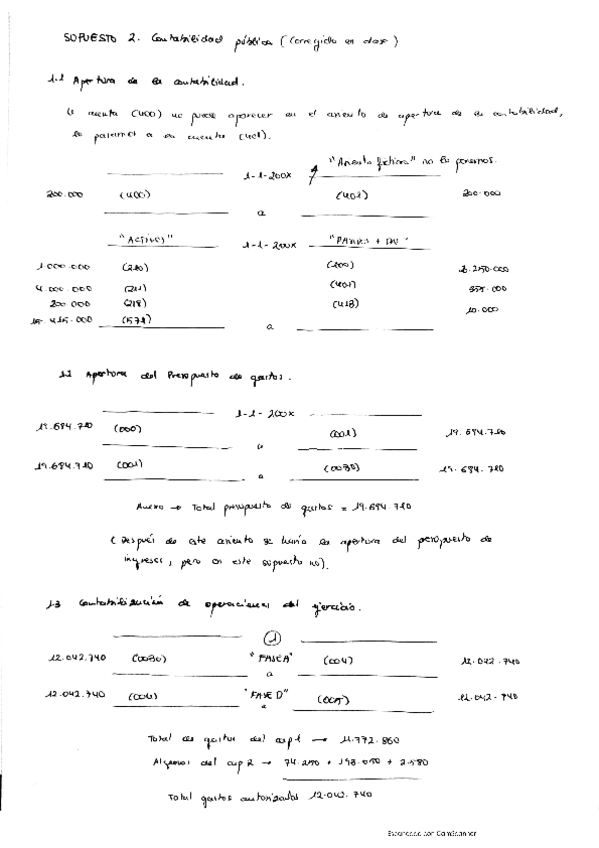 SUPUESTO 2. Contabilidad pública (Corregido en clase)
1.1 Apertura de la contabilidad.
La cuenta (400) no puede aparecer en el asiento de apertura de la contabilidad,
la pasamos a la cuenta (401).
1-1-200X "Asiento ficticio" no lo ponemos.
200.000 (400) a (401) 200.000
"ACTIVO" 1-1-200X "PASIVO + PN"
1.000.000 (210) (100)
4.000.000 (211) (401)
200.000 (218) (413) 10.000
(571) a
1.2 Apertura del Presupuesto de gastos.
1-1-200X
19.694.710 (000) a (001) 19.694.710
19.694.710 (001) a (0030) 19.694.710
Anexo → Total presupuesto de gastos = 19.694.710
(Después de este asiento se haría la apertura del presupuesto de
ingresos, pero en este supuesto no).
1.3 Contabilización de operaciones del ejercicio.
1
12.042.740 (0030) "FASE A" a (004) 12.042.740
12.042.740 (004) "FASE D" a (005) 12.042.740
Total de gastos del cap 1 → 11.772.860
Algunos del cap 2 → 74.250 + 193.050 + 2.580
Total gastos autorizados 12.042.740
Escaneado con CamScanner